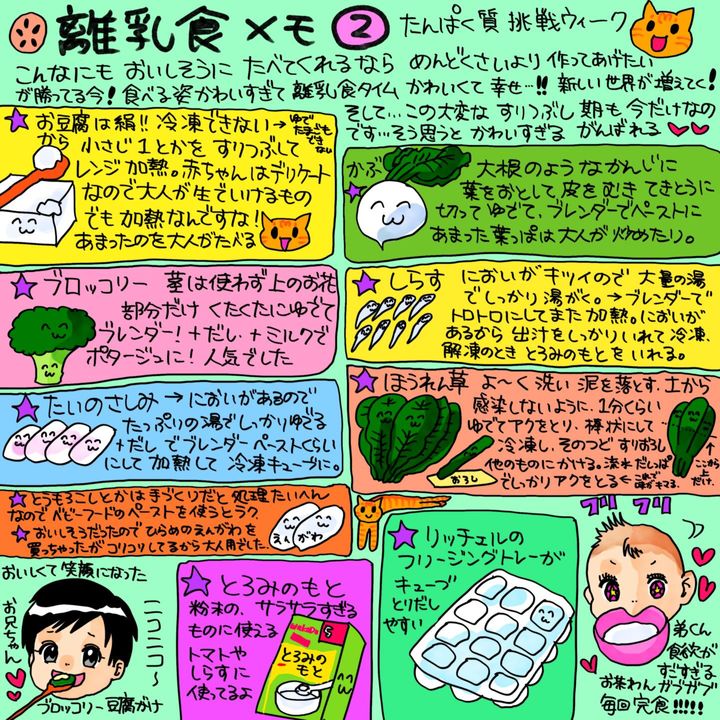 離乳食メモ② たんぱく質挑戦ウィーク
こんなにも おいしそうに たべてくれるなら めんどくさいより 作ってあげたい
が勝ってる今！食べる姿かわいすぎて 離乳食タイム かわいくて 幸せ…!! 新しい世界が増えてく！
そして…この大変な すりつぶし期も 今だけなの
です…そう思うと かわいすぎる がんばれる
お豆腐は絹!! 冷凍できない→ゆでたまごもできない
から 小さじ1とかを すりつぶして
レンジ加熱。赤ちゃんはデリケート
なので大人が生でいけるもの
でも 加熱なんですな！
あまったのを大人がたべる
かぶ 大根のようなかんじに
葉をおとして皮をむき てきとうに
切って ゆでて、ブレンダーでペーストに
あまった葉っぱは大人が 炒めたり。
ブロッコリー 茎は使わず上のお花
部分だけ くたくたにゆでて
ブレンダー！+だし、+ミルクで
ポタージュに！人気でした
しらす においがキツイので 大量の湯
でしっかり湯がく。→ブレンダーで
トロトロにしてまた加熱。においが
あるから 出汁をしっかりいれて冷凍、
解凍のとき とろみのもとを いれる。
たいのさしみ →においがあるので
たっぷりの湯でしっかりゆでる
+だし でブレンダー ペーストくらい
にして 加熱して 冷凍キューブに。
ほうれん草 よ〜く洗い 泥を落とす、土から
感染しないように、1分くらい
ゆでてアクをとり、棒状にして…
冷凍し、そのつど すりおろし
他のものにかける。流水だしっぱ
でしっかりアクをとる←これで味がキマる。
おろし
ここから上だけ、
とうもろこしとかは手づくりだと 処理たいへん
なので ベビーフードのペーストを使うとラク
おいしそうだったので ひらめのえんがわを
買っちゃったが コリコリしてるから大人用でした。
えんがわ
おいしくて笑顔になった
お兄ちゃん
ニコニコ〜
ブロッコリー豆腐がけ
とろみのもと
粉末の、サラサラすぎる
ものに使える
トマトや
しらすに
使ってるよ
wakodo
5
とろみの
もと
リッチェルの
フリージングトレーが
キューブ
とりだし
やすい
プリプリ
弟くん
食欲が
すごすぎる
お茶わんガブガブ
毎回完食!!!!!